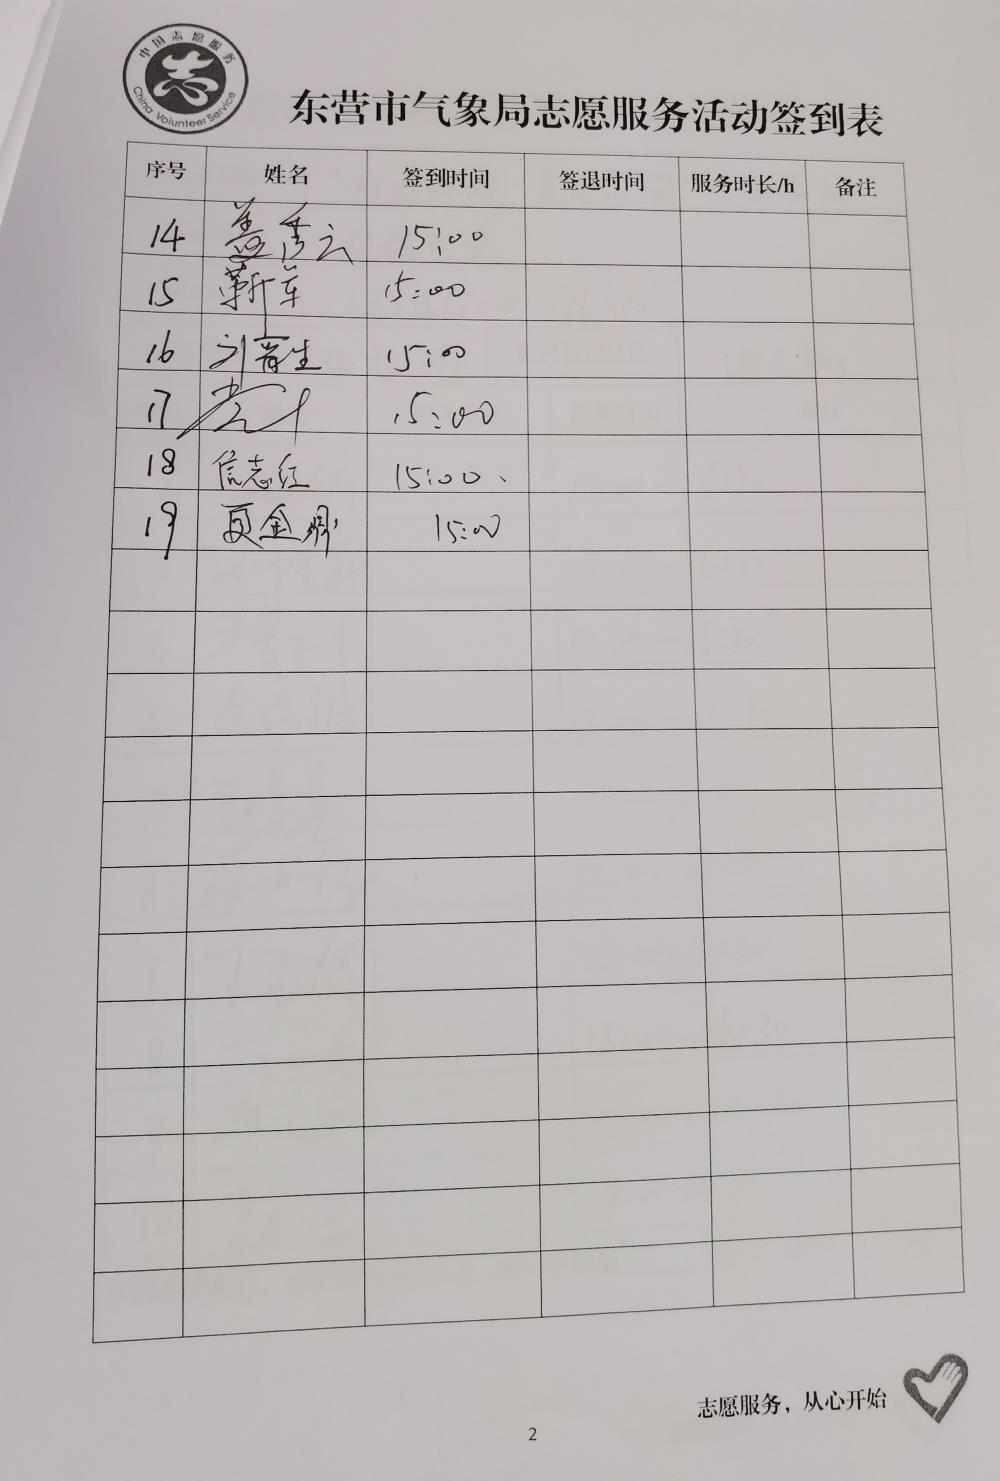 中国志愿服务
China Volunteer Service
东营市气象局志愿服务活动签到表
序号 姓名 签到时间 签退时间 服务时长/h 备注
14 盖秀云 15:00
15 靳军 15:00
16 刘晋生 15:00
17 15:00
18 信志红 15:00、
19 夏金鼎 15:00
志愿服务，从心开始
2